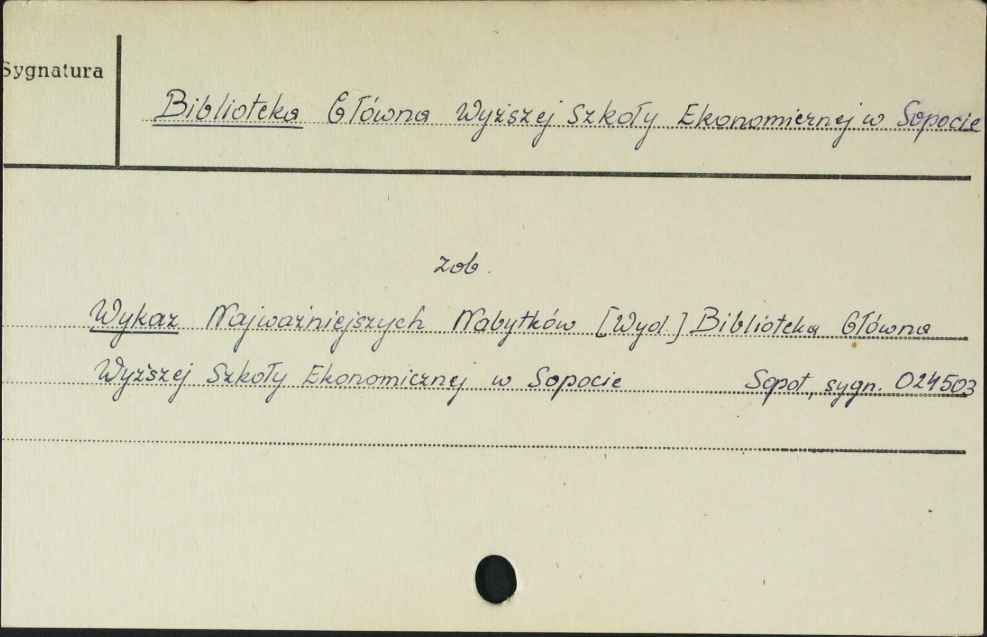 Sygnatura
Biblioteka Główna Wyższej Szkoły Ekonomicznej w Sopocie
zob.
Wykaz Najważniejszych Nabytków [Wyd.] Biblioteka Główna
Wyższej Szkoły Ekonomicznej w Sopocie Sopot, sygn. 024503